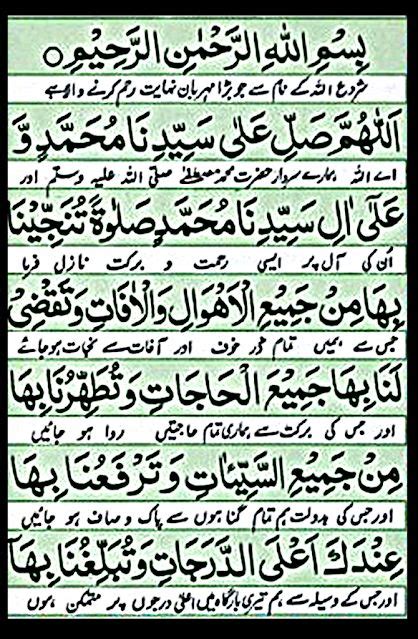 بِسْمِ اللهِ الرَّحْمٰنِ الرَّحِيْمِ ○
شروع اللہ کے نام سے جو بڑا مہربان نہایت رحم کرنے والا ہے
اَللّٰهُمَّ صَلِّ عَلٰى سَيِّدِنَا مُحَمَّدٍ وَّ
اے اللہ ہمارے سردار حضرت محمد مصطفےٰ صلی اللہ علیہ وسلم اور
عَلٰٓى اٰلِ سَيِّدِنَا مُحَمَّدٍ صَلٰوةً تُنَجِّيْنَا
اُن کی آل پر ایسی رحمت و برکت نازل فرما
بِهَا مِنْ جَمِيْعِ الْاَهْوَالِ وَالْاٰفَاتِ وَتَقْضِىْ
جس سے ہمیں تمام ڈر خوف اور آفات سے نجات ہوجائے
لَنَا بِهَا جَمِيْعَ الْحَاجَاتِ وَتُطَهِّرُنَا بِهَا
اور جس کی برکت سے ہماری تمام حاجتیں روا ہو جائیں
مِنْ جَمِيْعِ السَّيِّئَاتِ وَتَرْفَعُنَا بِهَا
اور جس کی بدولت ہم تمام گناہوں سے پاک و صاف ہو جائیں
عِنْدَكَ اَعْلَى الدَّرَجَاتِ وَتُبَلِّغُنَا بِهَآ
اور جس کے وسیلہ سے ہم تیری بارگاہ میں اعلیٰ درجوں پر متمکن ہوں